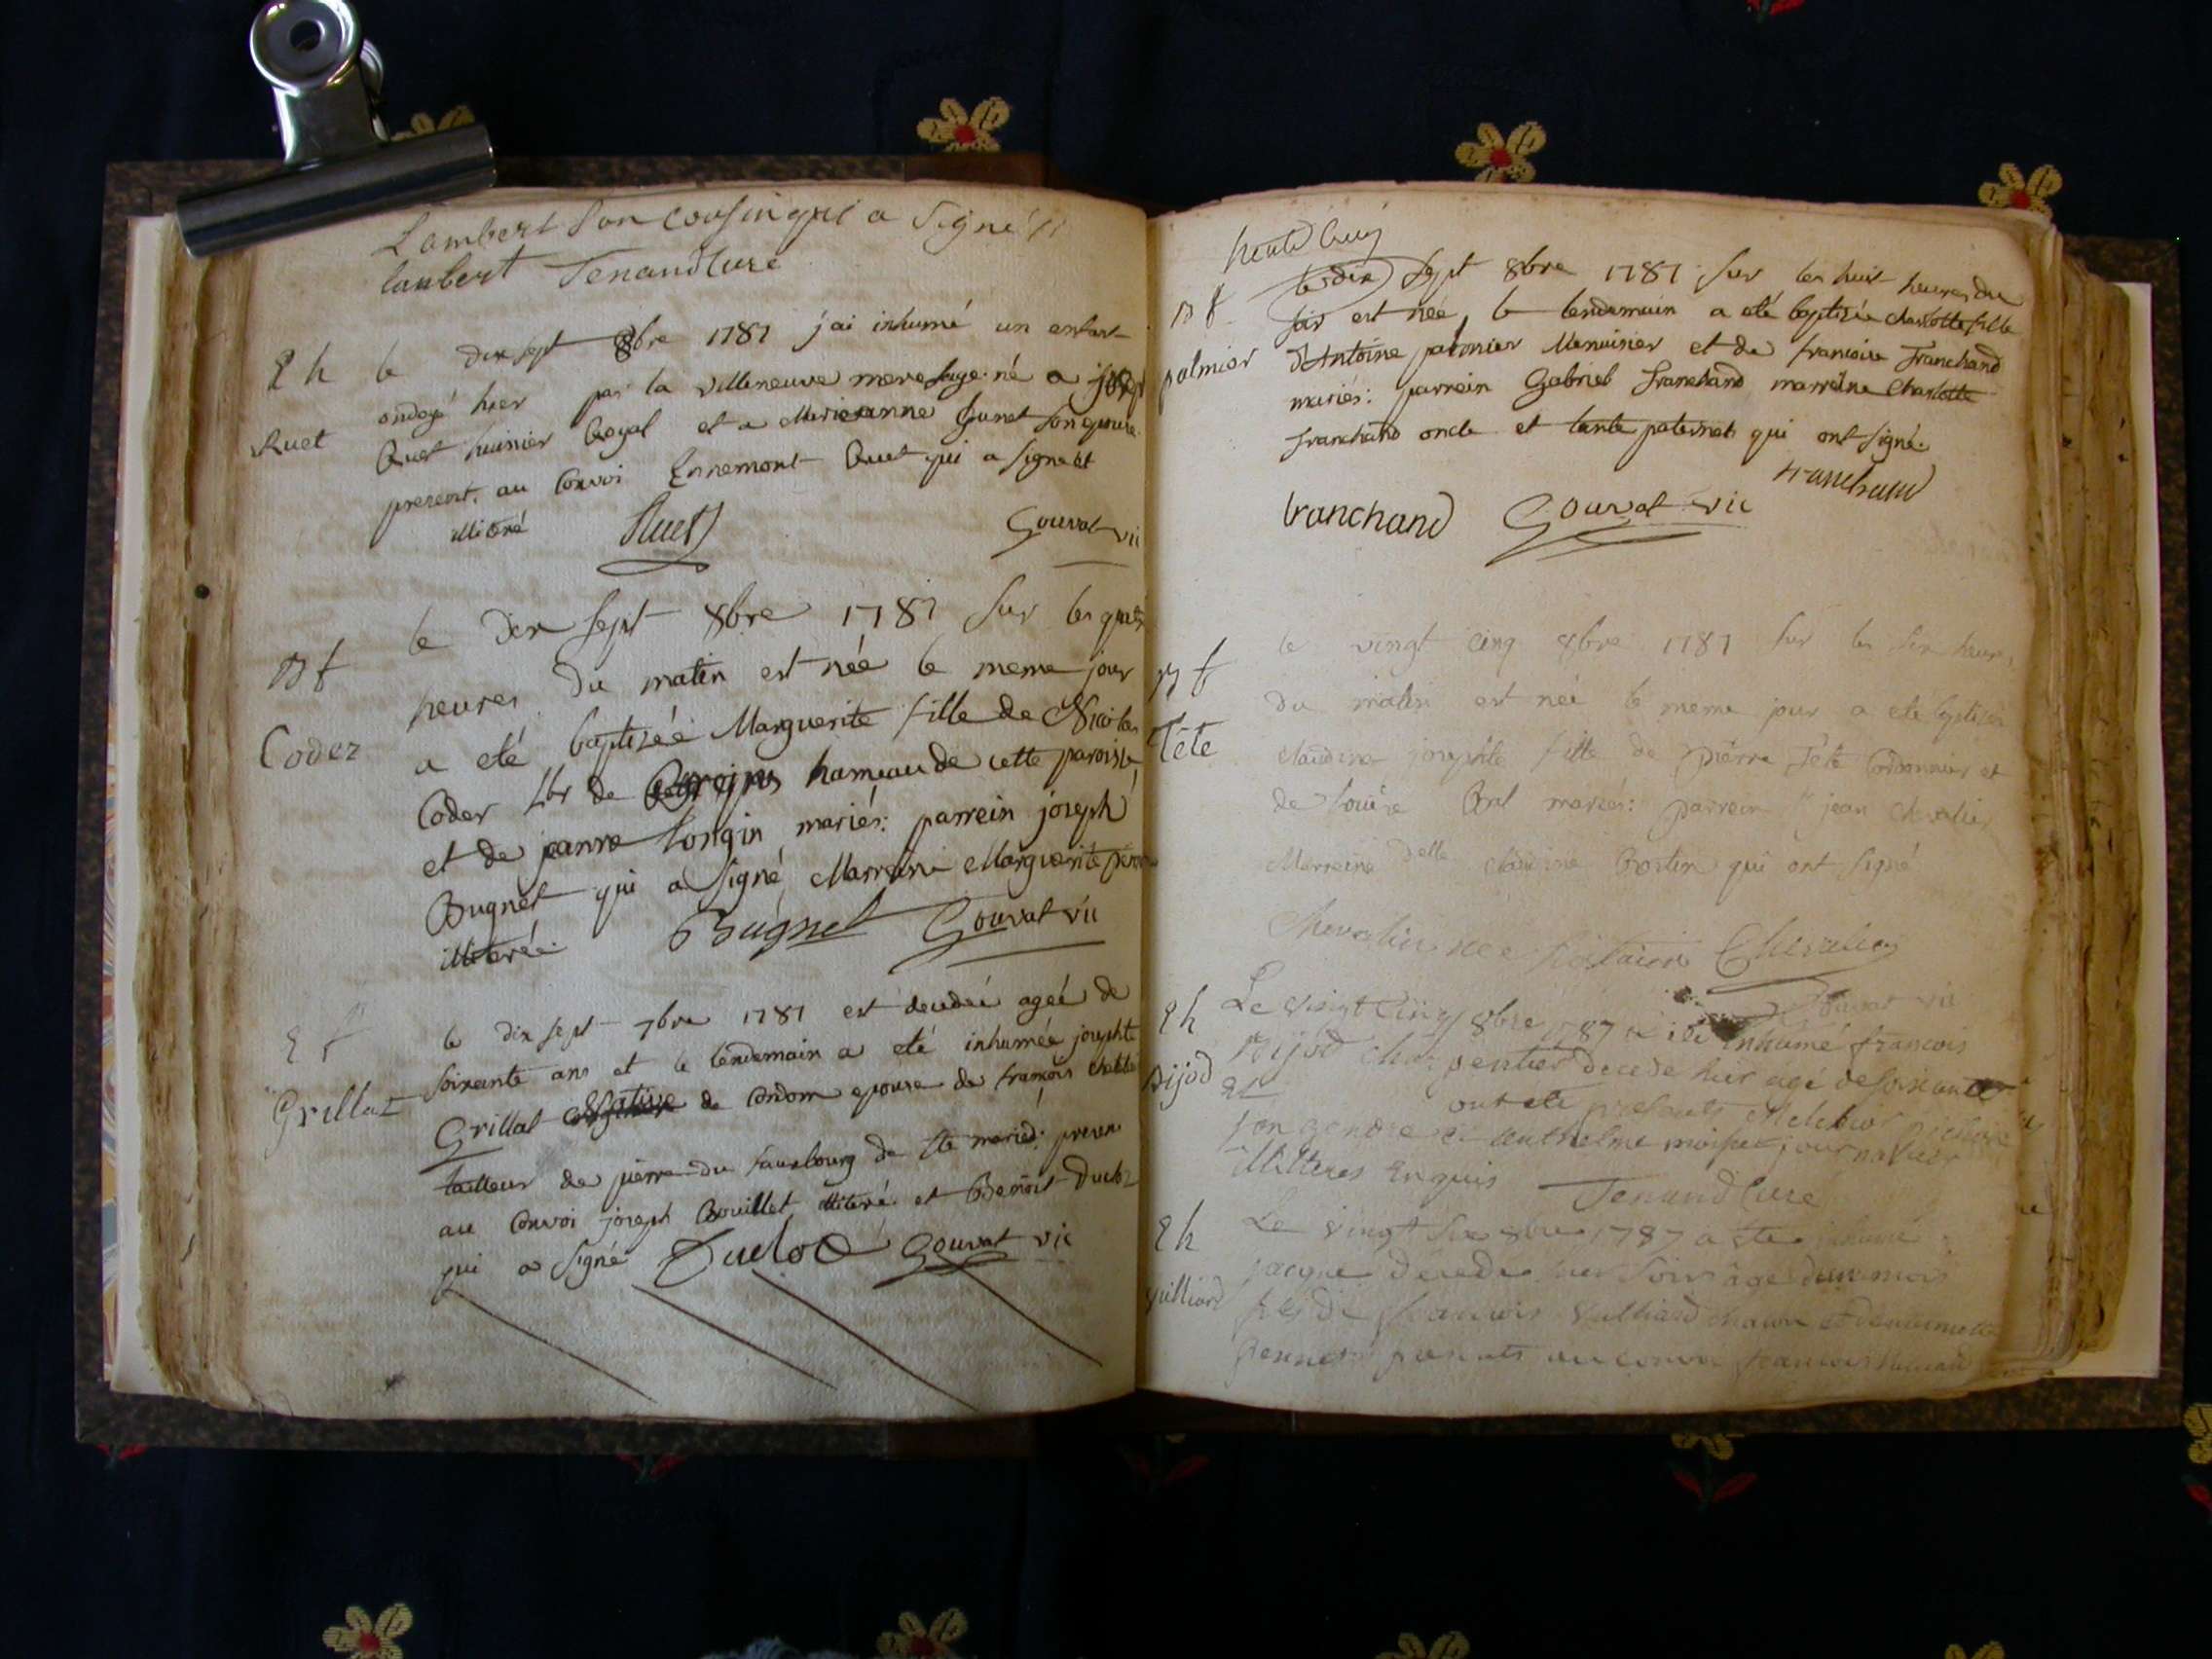 Lambert son cousin qui a signé //
lambert Tenand Curé
E h
Ruet
le dix sept 8bre 1787 j'ai inhumé un enfant
ondoyé hier par la villeneuve mere sage né a joseph
Ruet huissier Royal et a Marieanne Gunet son epouse
present, au Convoi Ennemont Ruet qui a signé et
illitéré Ruet Gouvat vic
B f
Coder
le dix sept 8bre 1787 sur les quatre
heures du matin est née le meme jour
a eté baptisée Marguerite fille de Nicolas
Coder Lbr de hameau de cette paroisse,
et de jeanne Longin mariés: parrein joseph
Bugnet qui a signé, Marreine Marguerite
illiterée. Bugnet Gouvat vic
E f
Grillat
le dix sept 7bre 1787 est decedée ageé de
soixante ans et le lendemain a eté inhumée josephte
Grillat native de Condom epouse de francois
tailleur de pierre du fauxbourg de ste marie: presen
au Convoi joseph Bouillet illitéré et Benoit Ducloz
qui a signé Ducloz Gouvat vic
B f
palmier
le dix sept 8bre 1787 sur les huit heures du
soir est née, le lendemain a eté baptisée charlotte fille
d'Antoine palmier Menuisier et de francoise Tranchand
mariés: parrein Gabriel Tranchand marreine Charlotte
Tranchand oncle et tante paternels qui ont signé.
tranchand Gouvat vic tranchand
B f
Tête
le vingt cinq 8bre 1787 sur les six heures
du matin est née le meme jour a eté baptisée
claudine josephte fille de pierre Tête Cordonnier et
de louise Bral mariés: parrein Sr jean chevalier
Marreine delle claudine Bostin qui ont signé
Chevalier née Chevalier
Gouvat vic
E h
Bijod
Le vingt cinq 8bre 1787 a été inhumé francois
Bijod charpentier decede hier agé de soixante
et ont eté presents Melchior
son gendre et Anthelme journalier
illiteres Enquis Tenand Curé
E h
Vuilliard
Le vingt six 8bre 1787 a ete inhumé
jacque decede hier soir age d'un mois
fils de francois Vulliard
presents au convoi francois